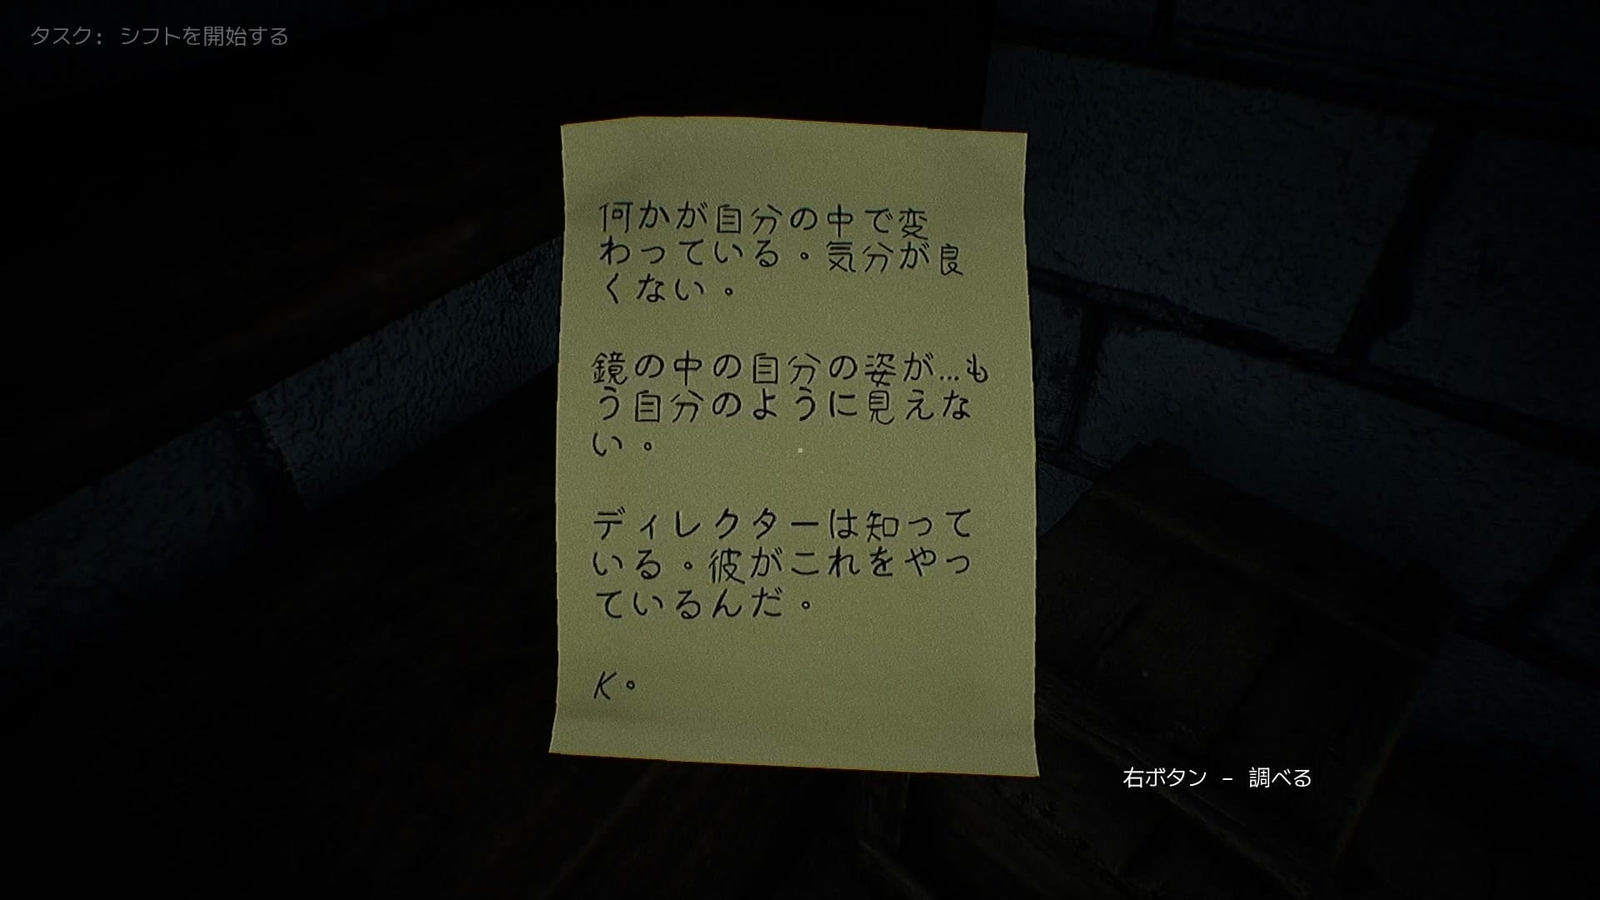 タスク: シフトを開始する
何かが自分の中で変
わっている。気分が良
くない。
鏡の中の自分の姿が...も
う自分のように見えな
い。
ディレクターは知って
いる。彼がこれをやっ
ているんだ。
K。
右ボタン - 調べる